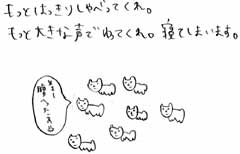 もっとはっきりしゃべってくれ。
もっと大きな声でねてくれ。寝てしまいます。
腹へったある